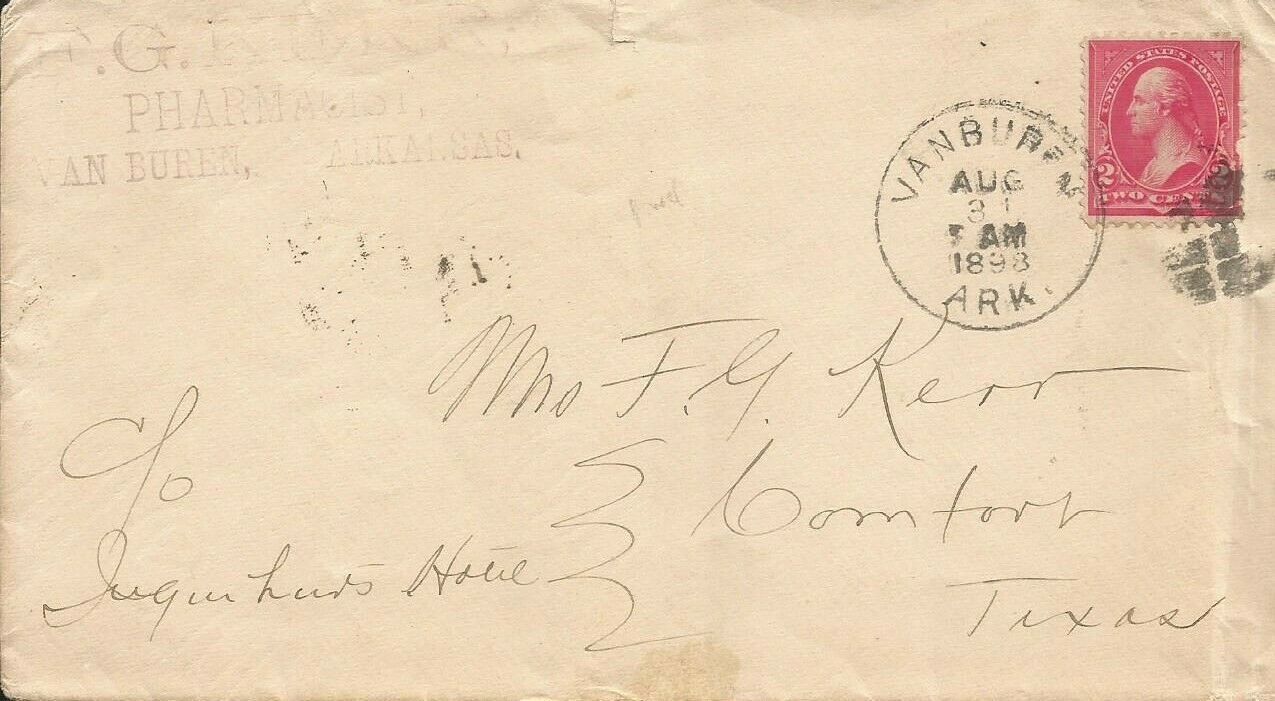 F. G.
PHARMACIST,
VAN BUREN, ARKANSAS.
UNITED STATES POSTAGE
2 2
TWO CENTS
VAN BUREN
AUG
31
AM
1898
ARK.
Mrs F. G. Kerr
Comfort
Texas
c/o
Hotel